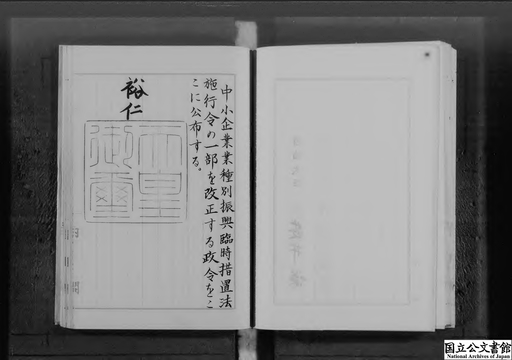 中小企業業種別振興臨時措置法
施行令の一部を改正する政令をこ
こに公布する。
裕仁
天皇
御璽
国立公文書館
National Archives of Japan